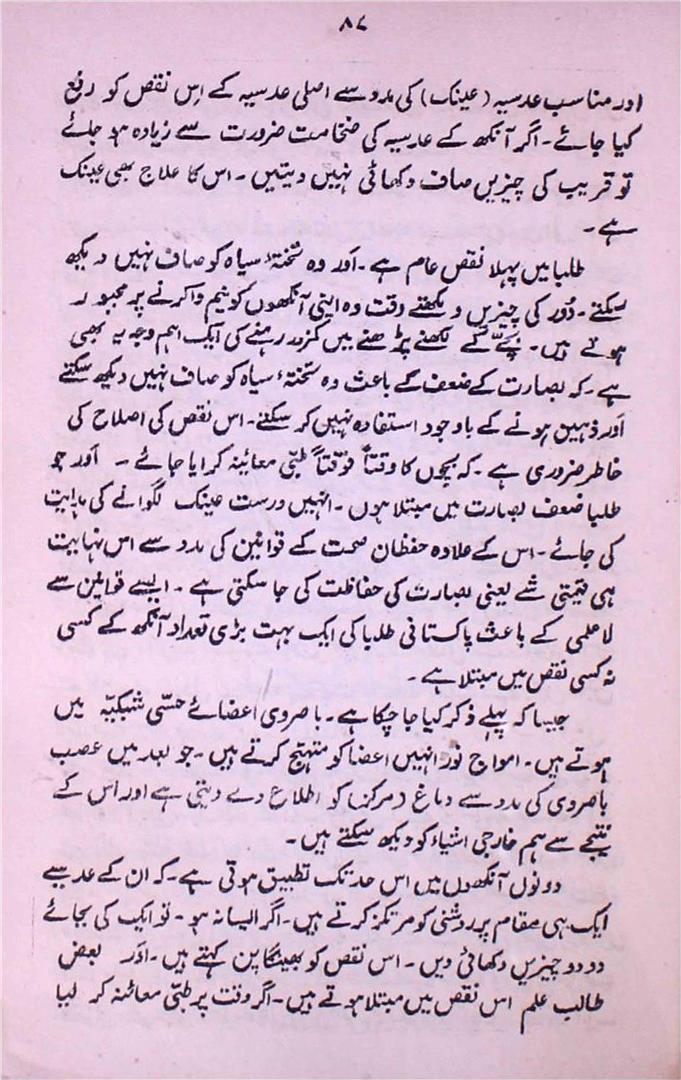 ۸۷
اور مناسب عدسیہ (عینک) کی مدد سے اصلی عدسیہ کے اِس نقص کو رفع
کیا جائے۔ اگر آنکھ کے عدسیہ کی ضخامت ضرورت سے زیادہ ہو جائے
تو قریب کی چیزیں صاف دکھائی نہیں دیتیں۔ اس کا علاج بھی عینک
ہے۔
طلبا میں پہلا نقص عام ہے۔ اَور وہ تختۂ سیاہ کو صاف نہیں دیکھ
سکتے۔ دُور کی چیزیں دیکھتے وقت وہ اپنی آنکھوں کو نیم وا کرنے پر مجبور
ہوتے ہیں۔ بچّے کے لکھنے پڑھنے میں کمزور رہنے کی ایک اہم وجہ یہ بھی
ہے۔ کہ بصارت کے ضعف کے باعث وہ تختۂ سیاہ کو صاف نہیں دیکھ سکتے
اَور ذہین ہونے کے باوجود استفادہ نہیں کر سکتے۔ اس نقص کی اصلاح کی
خاطر ضروری ہے۔ کہ بچوں کا وقتاً فوقتاً طبّی معائنہ کرایا جائے۔ اَور جو
طلبا ضعف بصارت میں مبتلا ہوں۔ انہیں درست عینک لگوانے کی ہدایت
کی جائے۔ اس کے علاوہ حفظان صحت کے قوانین کی مدد سے اس نہایت
ہی قیمتی شے یعنی بصارت کی حفاظت کی جا سکتی ہے۔ ایسے قوانین سے
لاعلمی کے باعث پاکستانی طلبا کی ایک بہت بڑی تعداد آنکھ کے کسی
نہ کسی نقص میں مبتلا ہے۔
جیسا کہ پہلے ذکر کیا جا چکا ہے۔ باصروی اعضائے حسّی شبکیّہ میں
ہوتے ہیں۔ امواج نور انہیں اعضا کو متہیج کرتے ہیں۔ جو بعد میں عصب
باصروی کی مدد سے دماغ (مرکز) کو اطلاع دے دیتی ہے اور اس کے
نتیجے سے ہم خارجی اشیاء کو دیکھ سکتے ہیں۔
دونوں آنکھوں میں اس حد تک تطبیق ہوتی ہے۔ کہ ان کے عدسیے
ایک ہی مقام پر روشنی کو مرتکز کرتے ہیں۔ اگر ایسا نہ ہو۔ تو ایک کی بجائے
دو دو چیزیں دکھائی دیں۔ اس نقص کو بھینگا پن کہتے ہیں۔ اَور بعض
طالب علم اس نقص میں مبتلا ہوتے ہیں۔ اگر وقت پر طبّی معائنہ کر لیا